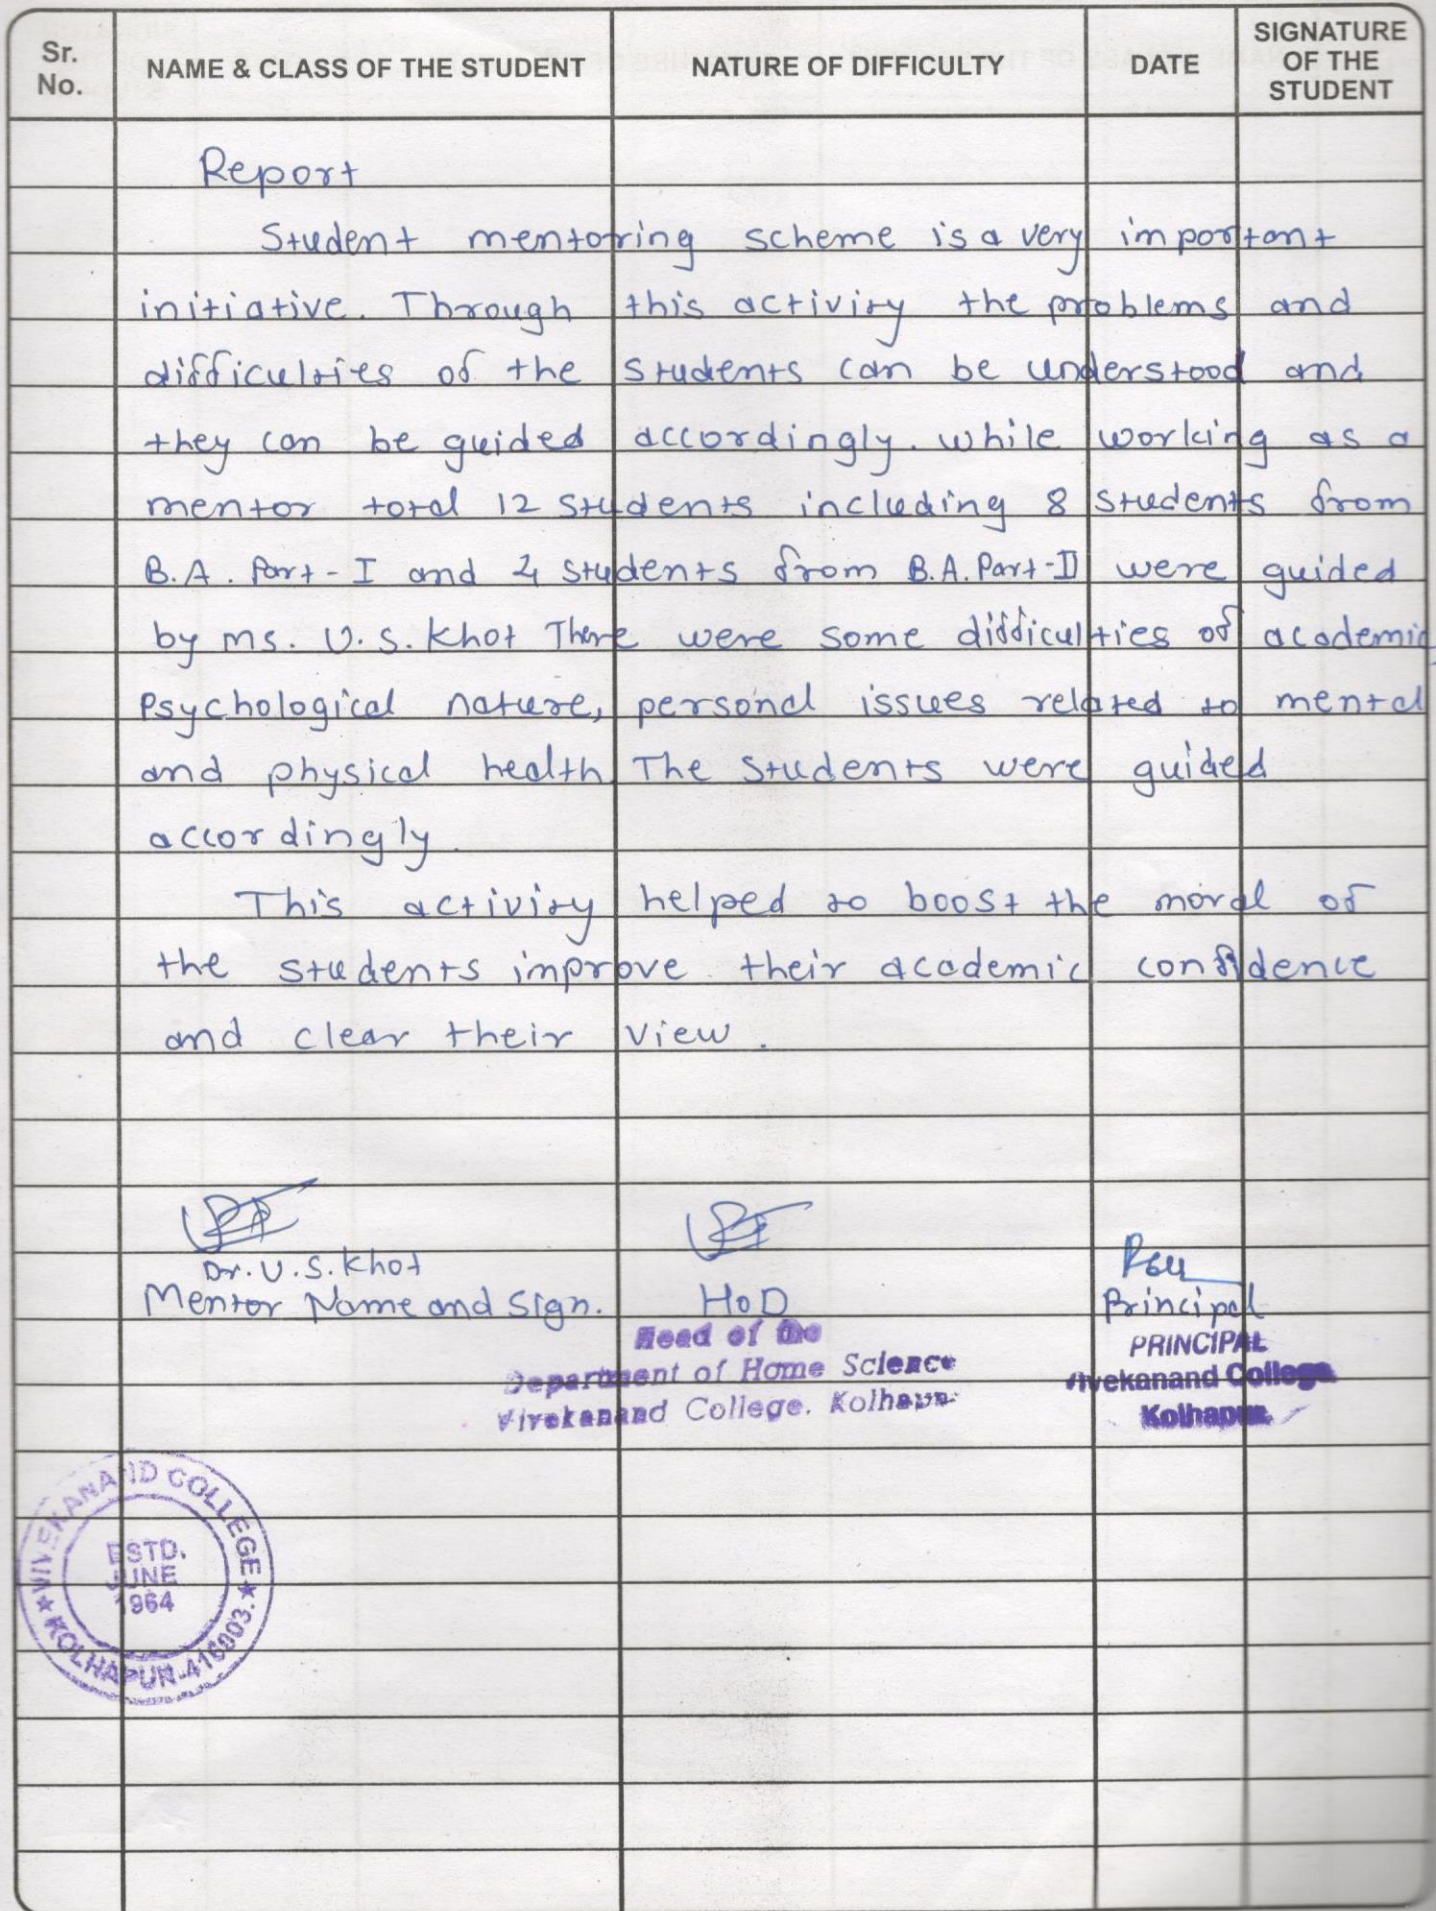 Sr. No.
NAME & CLASS OF THE STUDENT
NATURE OF DIFFICULTY
DATE
SIGNATURE OF THE STUDENT
Report
Student mentoring scheme is a very important
initiative. Through this activity the problems and
difficulties of the students can be understood and
they can be guided accordingly. while working as a
mentor total 12 students including 8 students from
B.A. Part-I and 4 students from B.A. Part-II were guided
by ms. U.S. Khot There were some difficulties of academic,
Psychological nature, personal issues related to mental
and physical health The students were guided
accordingly.
This activity helped to boost the moral of
the students improve their academic confidence
and clear their view.
Dr. U.S. Khot
Mentor Name and Sign.
HoD
Principal
Head of the
Department of Home Science
Vivekanand College, Kolhapur
PRINCIPAL
Vivekanand College
Kolhapur.
VIVEKANAND COLLEGE
ESTD.
JUNE
1964
KOLHAPUR-416003.